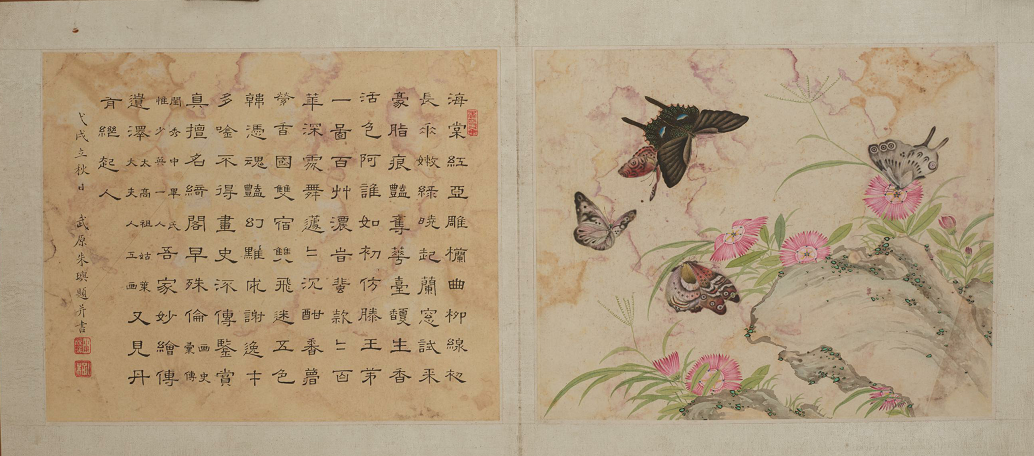 海棠紅亞雕欄曲柳線初
長垂嫩綠曉起蘭窓試采
豪脂痕豔奪華臺馥生香
活色阿誰如初仿滕王第
一圖百艸濃皆蜚款款百
華深處舞蘧蘧沉酣香夢
縈香國雙宿雙飛迷五色
韓憑魂豔幻難成謝逸才
多唫不得畫史流傳鑒賞
真擅名繡閣早殊倫畫史彙傳
閨秀中畢氏惟少一人吾家妙繪傳
遺澤太高祖姑葉太夫人又見丹
青繼起人
戊戌立秋日 武原朱璵題并書